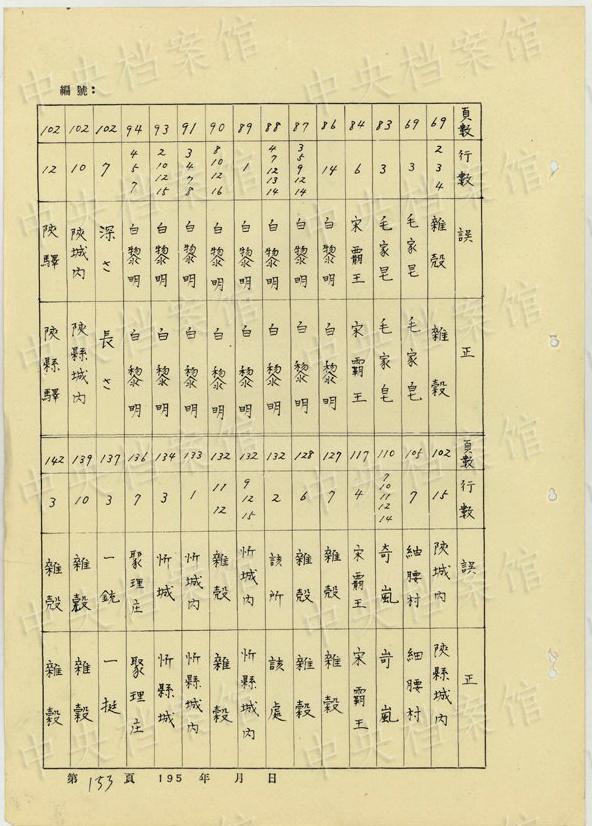 編號:
頁數 行數 誤 正
69 2 3 4 雜殼 雜穀
69 3 毛家皀 毛家皂
83 3 毛家皀 毛家皂
84 6 宋覇王 宋霸王
86 14 白黎明 白黎明
87 3 5 9 12 14 白黎明 白黎明
88 4 7 12 13 14 白黎明 白黎明
89 1 白黎明 白黎明
90 8 10 12 16 白黎明 白黎明
91 3 4 7 8 白黎明 白黎明
93 2 10 12 15 白黎明 白黎明
94 4 5 7 白黎明 白黎明
102 7 深さ 長さ
102 10 陝城內 陝縣城內
102 12 陝驛 陝縣驛
頁數 行數 誤 正
102 15 陝城內 陝縣城內
105 7 紬腰村 細腰村
110 7 10 11 12 14 奇嵐 岢嵐
117 4 宋覇王 宋霸王
127 7 雜殼 雜穀
128 6 雜殼 雜穀
132 2 該所 該處
132 9 12 15 忻城內 忻縣城內
132 11 12 雜殼 雜穀
133 1 忻城內 忻縣城內
134 3 忻城 忻縣城
136 7 聚理庄 聚理庄
137 3 一銃 一挺
139 10 雜殼 雜穀
142 3 雜殼 雜穀
第 153 頁 195 年 月 日
中央档案馆